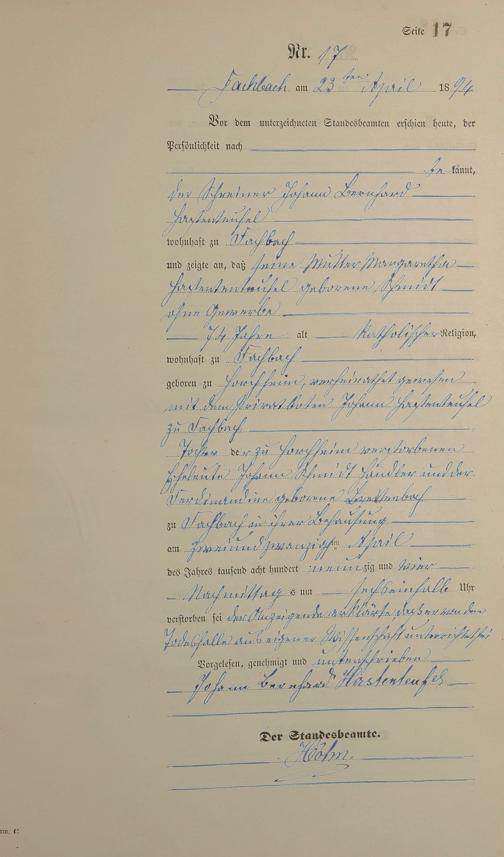 Seite 17
Nr. 17
Fachbach am 23ten April 1894
Vor dem unterzeichneten Standesbeamten erschien heute, der
Persönlichkeit nach
be kannt,
der Schreiner Johann Bernhard
Hastenteufel
wohnhaft zu Fachbach
und zeigte an, daß seine Mutter Margaretha
Hastenteufel geborene Schmidt
ohne Gewerbe
74 Jahre alt katholischer Religion,
wohnhaft zu Fachbach
geboren zu Horchheim, verheirathet gewesen
mit dem Johann Hastenteufel
zu Fachbach
Tochter der zu Horchheim verstorbenen
Eheleute Johann Schmidt Händler und der
Ferdinandine geborene
zu Fachbach in ihrer Behausung
am zweiundzwanzigsten April
des Jahres tausend acht hundert neunzig und vier
Nachmittags um sechseinhalb Uhr
verstorben sei der Anzeigende erklärte, daß er von dem
Todesfalle aus eigener Wissenschaft unterrichtet sei
Vorgelesen, genehmigt und unterschrieben
Johann Bernhard Hastenteufel
Der Standesbeamte.
Höhn.